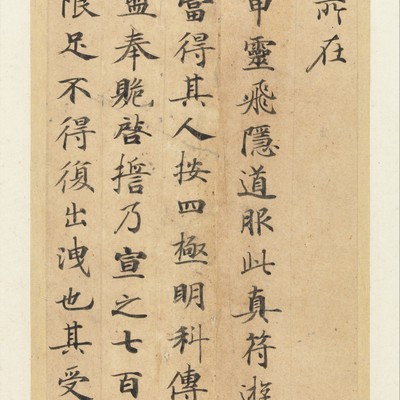 所在
甲靈飛隱道服此真符遊
當得其人按四極明科傳
盟奉賝啓擔乃宣之七百
限足不得復出洩也其受